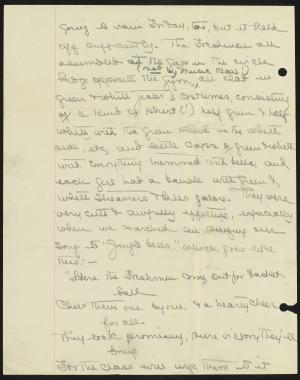 going to rain Friday, too, but it held
off sufficiently. The Freshmen all
assembled at the gap in the circle
(not by Music Hall!)
hedge opposite the gym, all clad in
green & white jester's costumes, consisting
of a kind of shirt (!) half green & half
white with the green sleeve in the white
side, etc, and little caps of green & white
with everything trimmed with bells, and
each girl had a bauble with green &
white streamers & bells galore. They were
very cute & awfully effective, especially
when we marched in singing our
song to "Jingle bells" which goes like
this: —
"Here the Freshmen come, out for basket
ball
Cheer them one by one, & a hearty cheer
for all.
They look promising, there victory they'll
bring
For the class will urge them to it